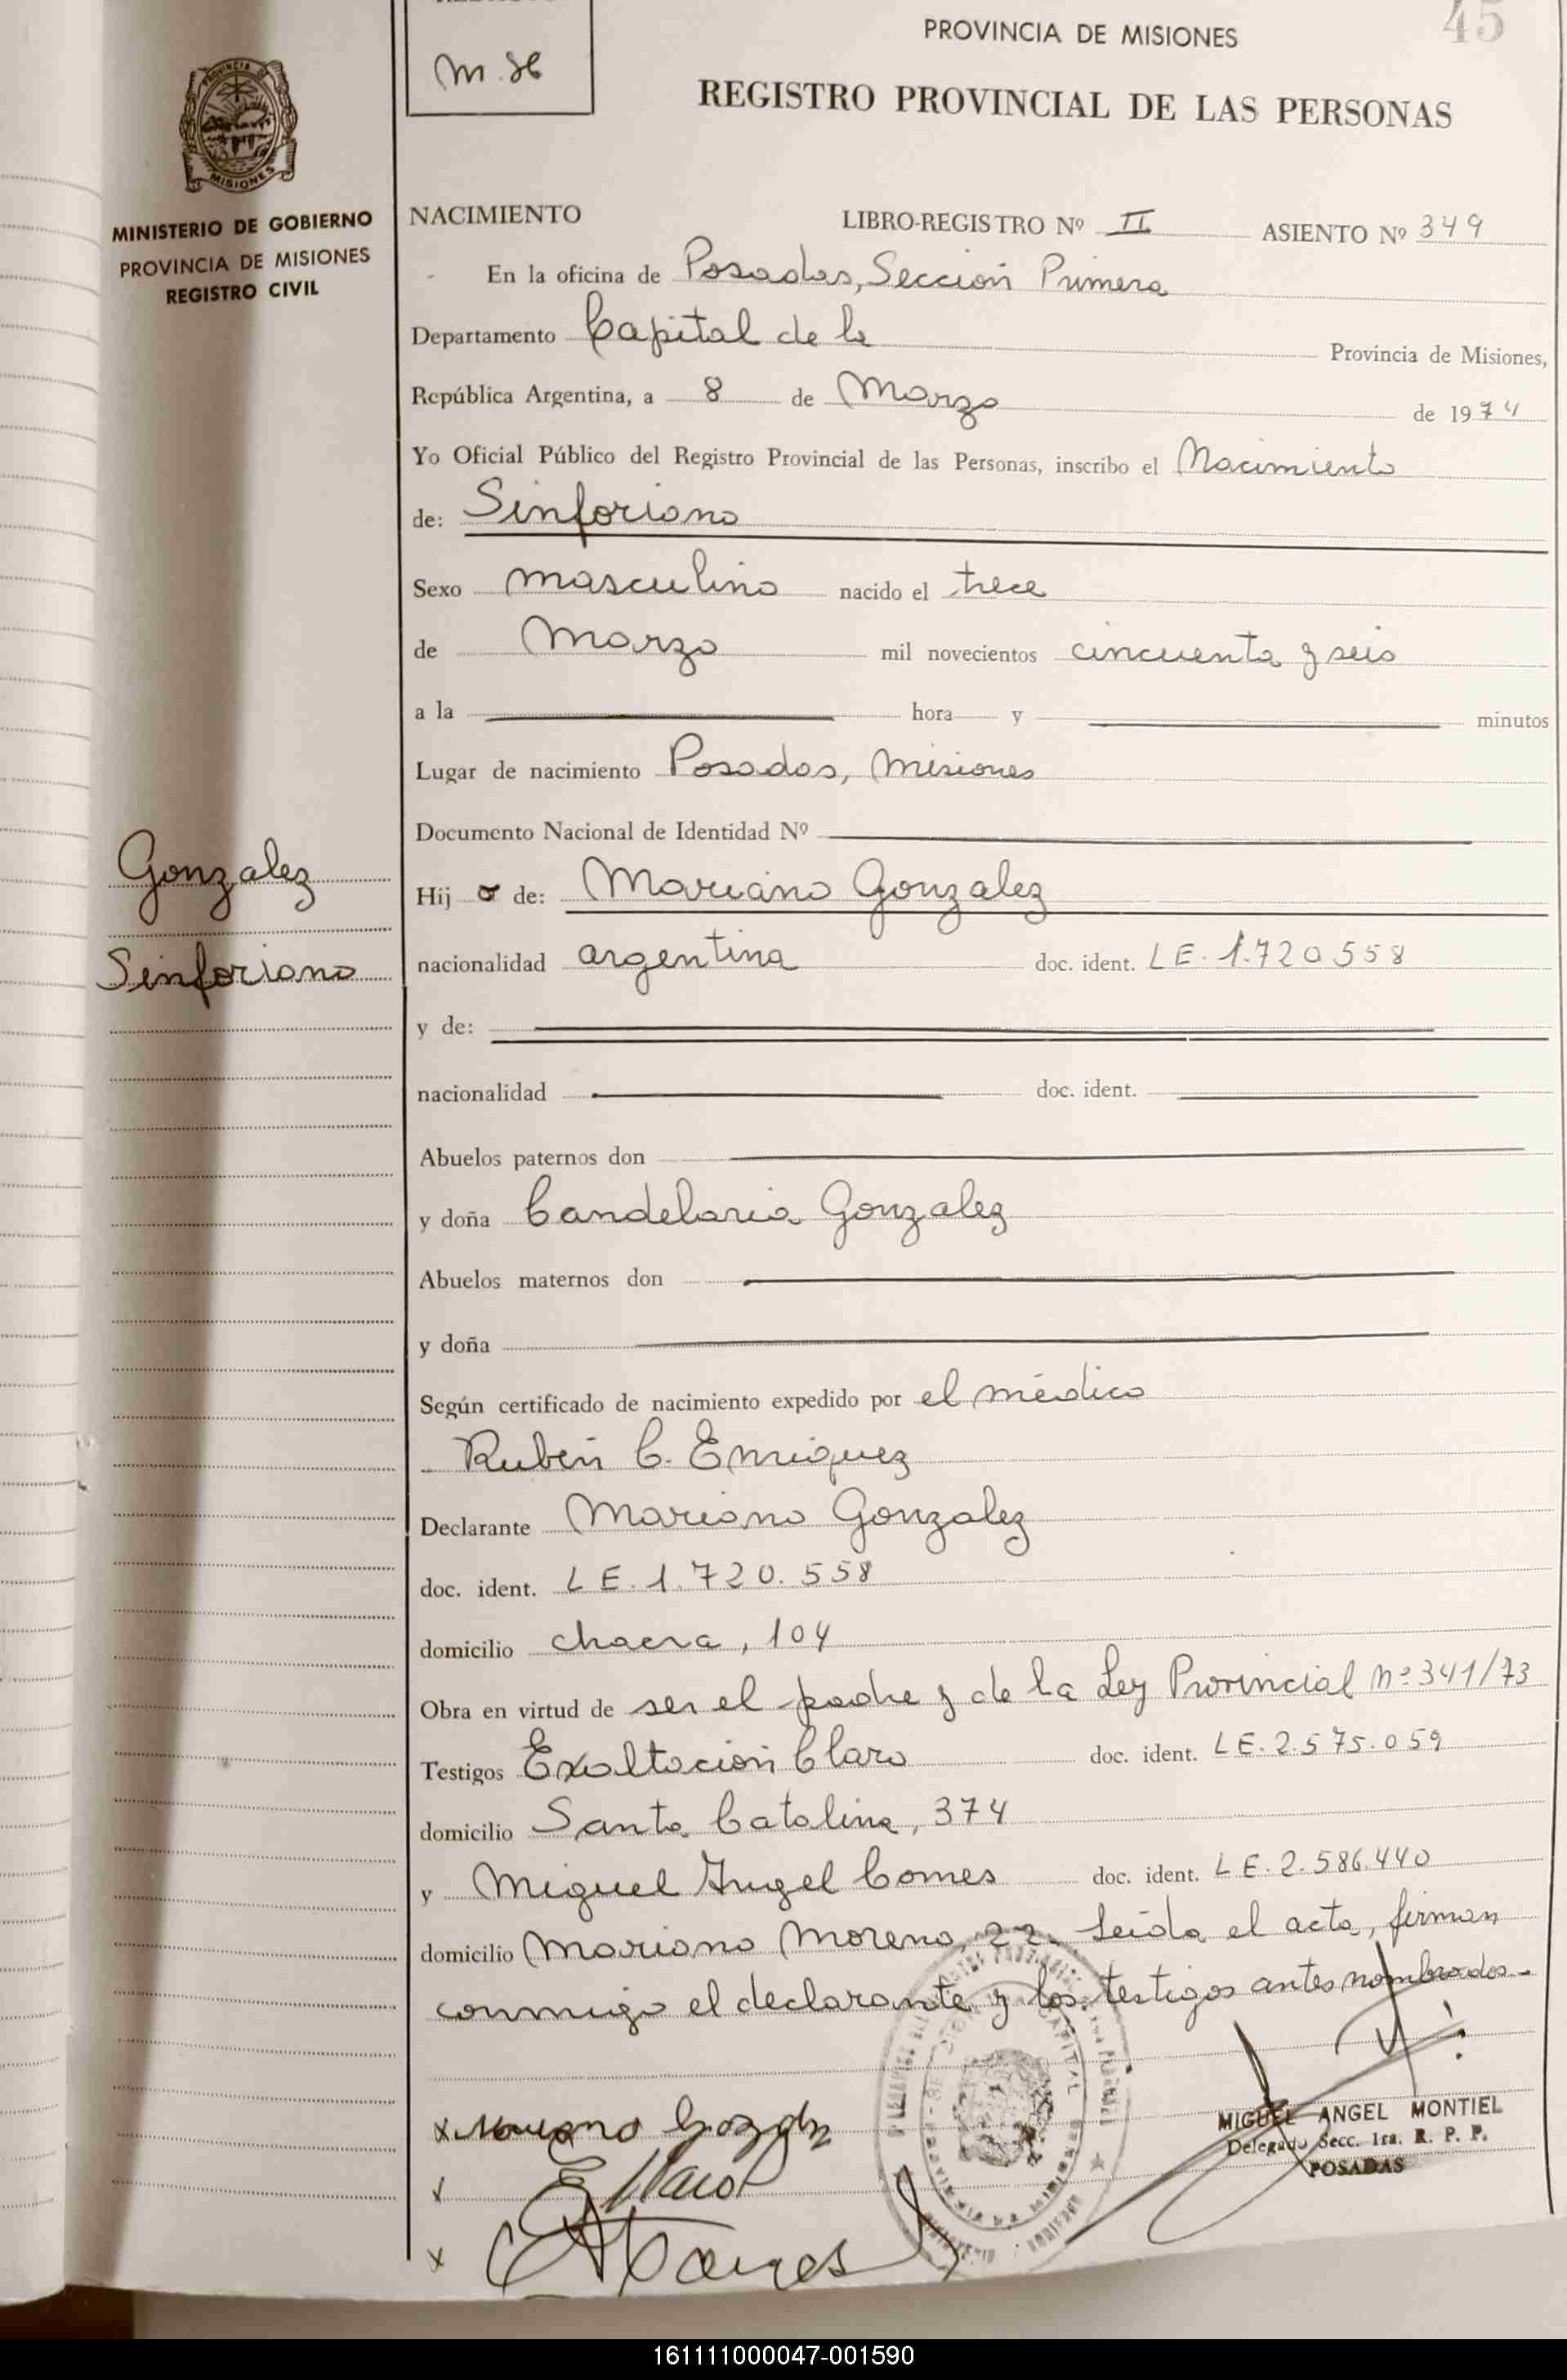 45
PROVINCIA DE MISIONES
REGISTRO PROVINCIAL DE LAS PERSONAS
MISIONES
MINISTERIO DE GOBIERNO
PROVINCIA DE MISIONES
REGISTRO CIVIL
NACIMIENTO LIBRO-REGISTRO Nº II ASIENTO Nº 349
En la oficina de Posadas, Sección Primera
Departamento Capital de la Provincia de Misiones,
República Argentina, a 8 de Marzo de 1974
Yo Oficial Público del Registro Provincial de las Personas, inscribo el Nacimiento
de: Sinforiano
Sexo masculino nacido el trece
de Marzo mil novecientos cincuenta y seis
a la hora y minutos
Lugar de nacimiento Posadas, Misiones
Documento Nacional de Identidad Nº
Gonzalez
Sinforiano
Hijo de: Mariano Gonzalez
nacionalidad argentina doc. ident. LE. 1.720558
y de:
nacionalidad doc. ident.
Abuelos paternos don
y doña Candelaria Gonzalez
Abuelos maternos don
y doña
Según certificado de nacimiento expedido por el médico
Rubén C. Enriquez
Declarante Mariano Gonzalez
doc. ident. LE. 1.720.558
domicilio chacra, 104
Obra en virtud de ser el padre y de la Ley Provincial nº 341/73
Testigos Exaltación Claro doc. ident. LE. 2.575.059
domicilio Santa Catalina, 374
y Miguel Angel Comes doc. ident. LE. 2.586.440
domicilio Mariano Moreno, 22. Leída el acta, firman
conmigo el declarante y los testigos antes nombrados.-
CAPITAL
MIGUEL ANGEL MONTIEL
Delegado Secc. 1ra. R. P. P.
POSADAS
161111000047-001590